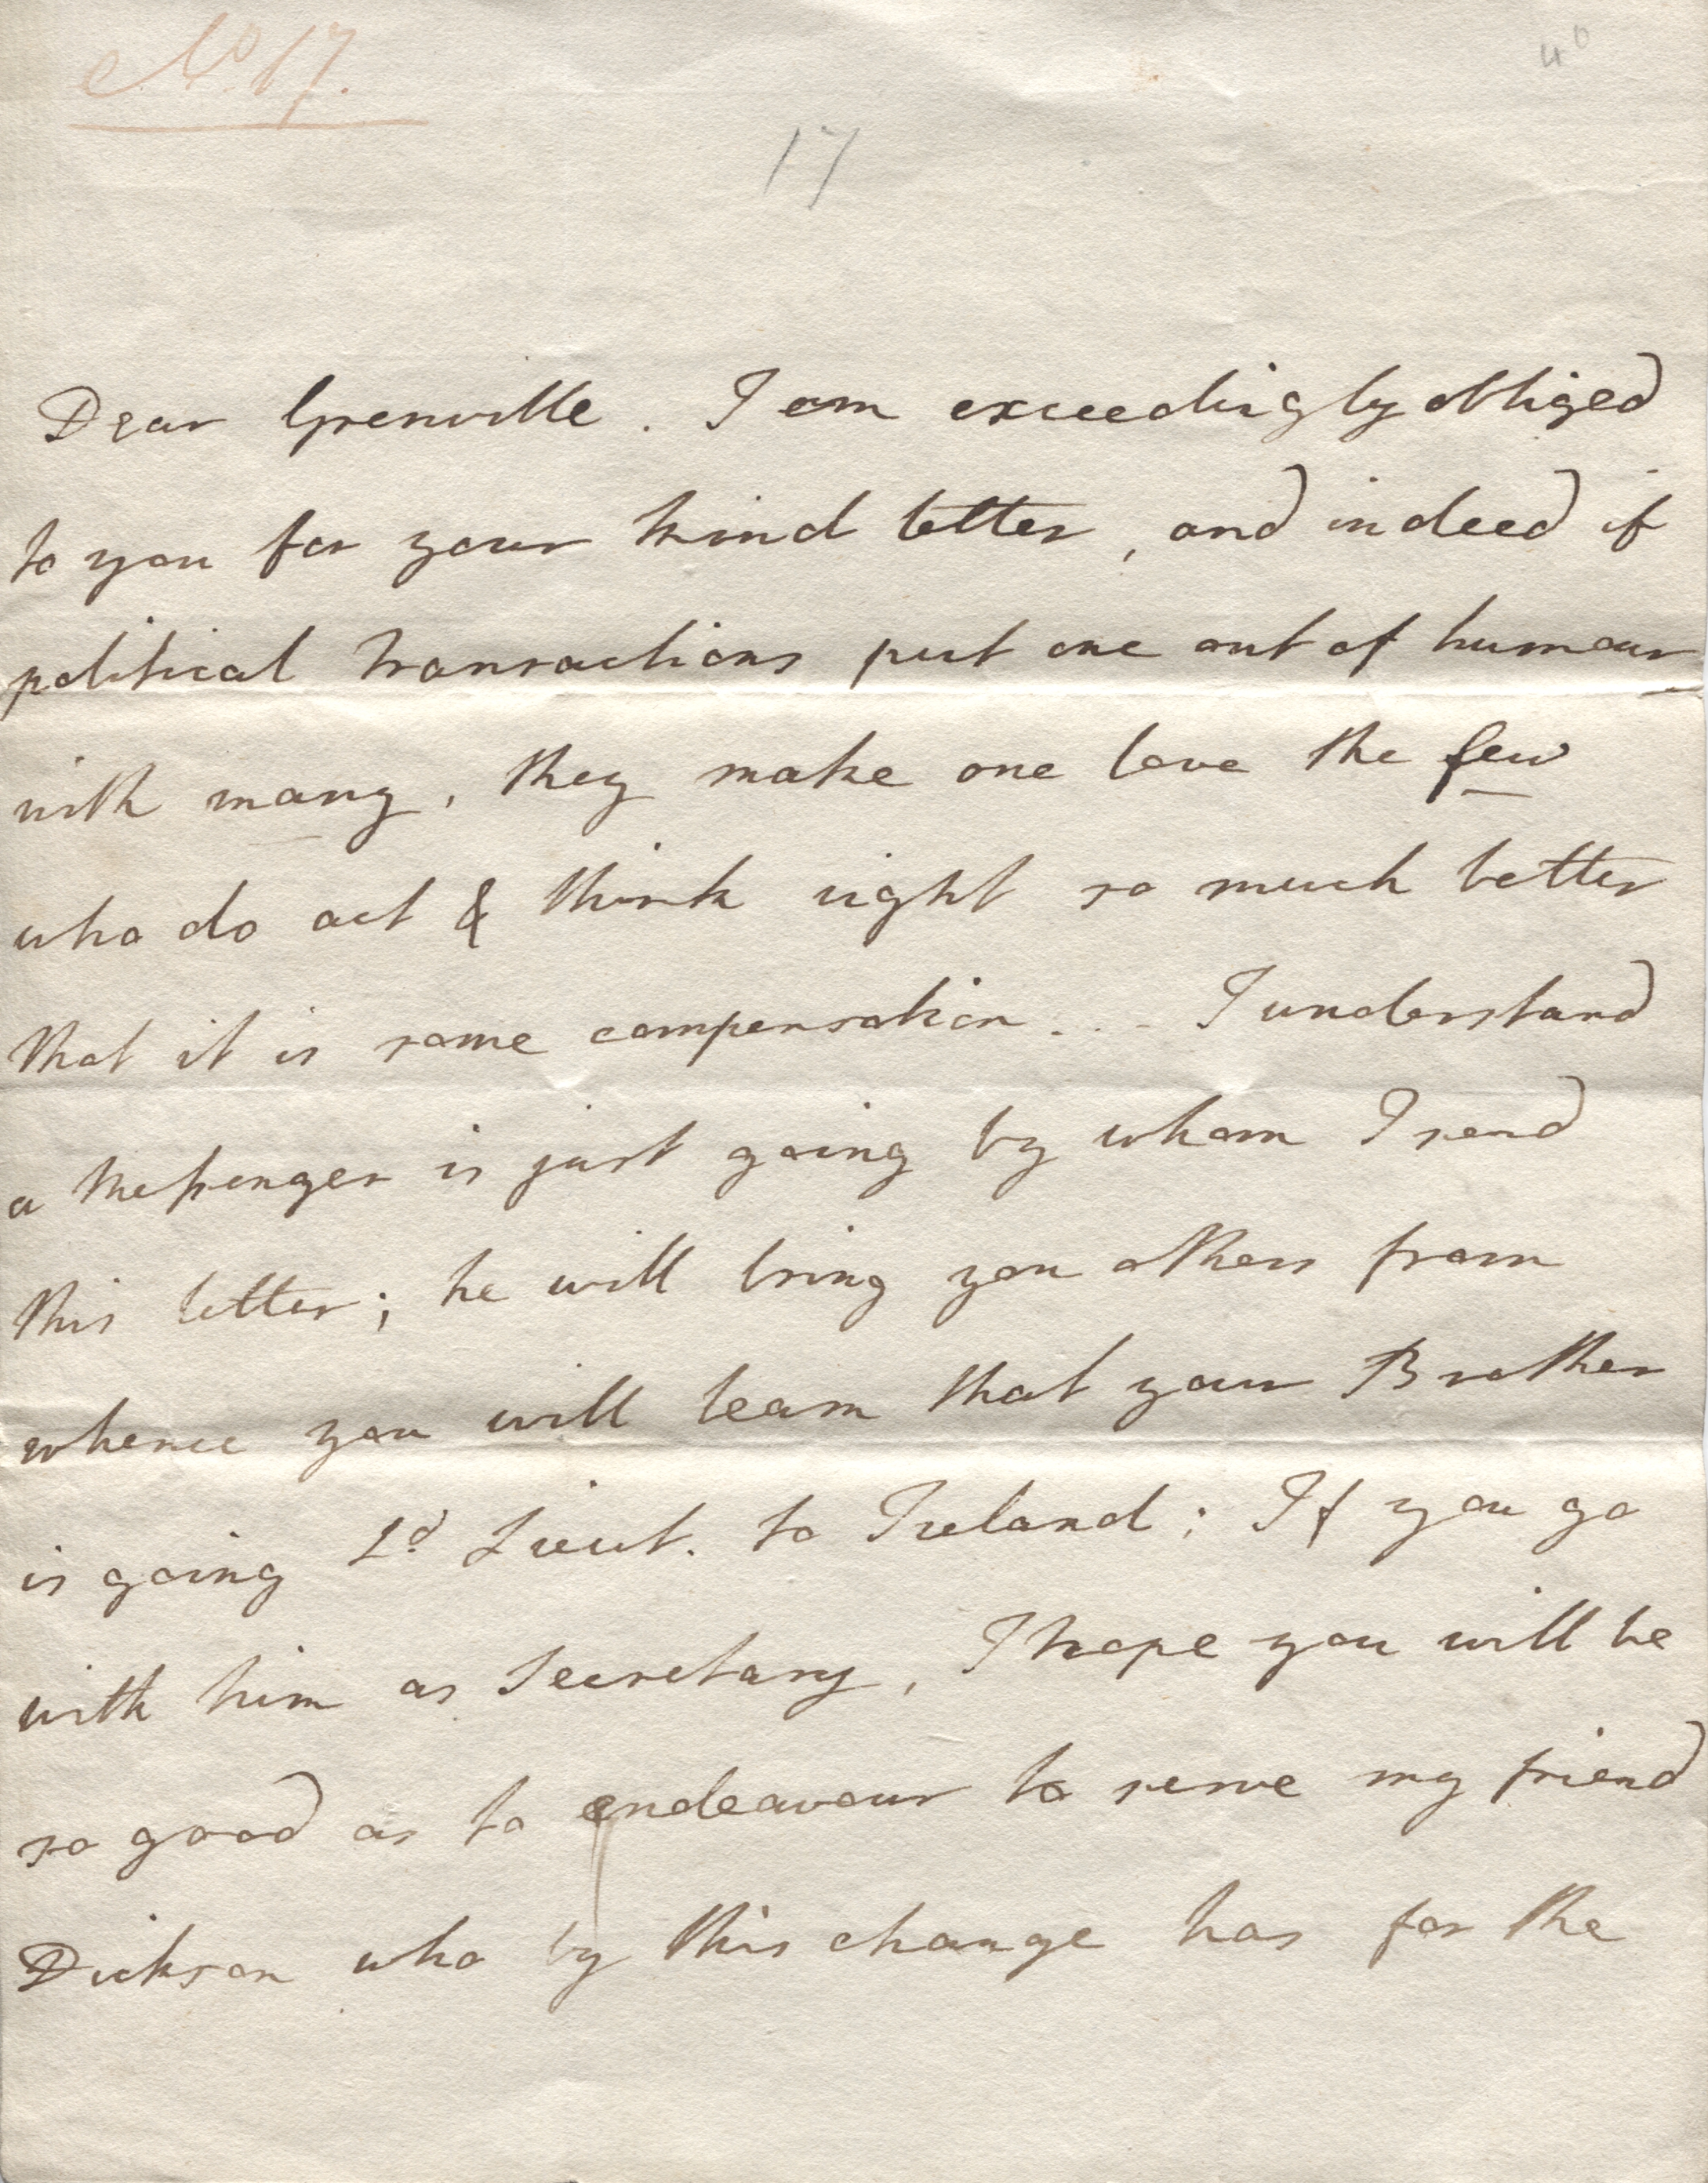 No 17.
40
17
Dear Grenville. I am exceedingly obliged
to you for your kind letter, and indeed if
political transactions put one out of humour
with many, they make one love the few
who do act & think right so much better
that it is some compensation... I understand
a Messenger is just going by whom I send
this letter; he will bring you others from
whence you will learn that your Brother
is going Ld. Lieut. to Ireland; If you go
with him as Secretary, I hope you will be
so good as to endeavour to serve my friend
Dickson who by this change has for the